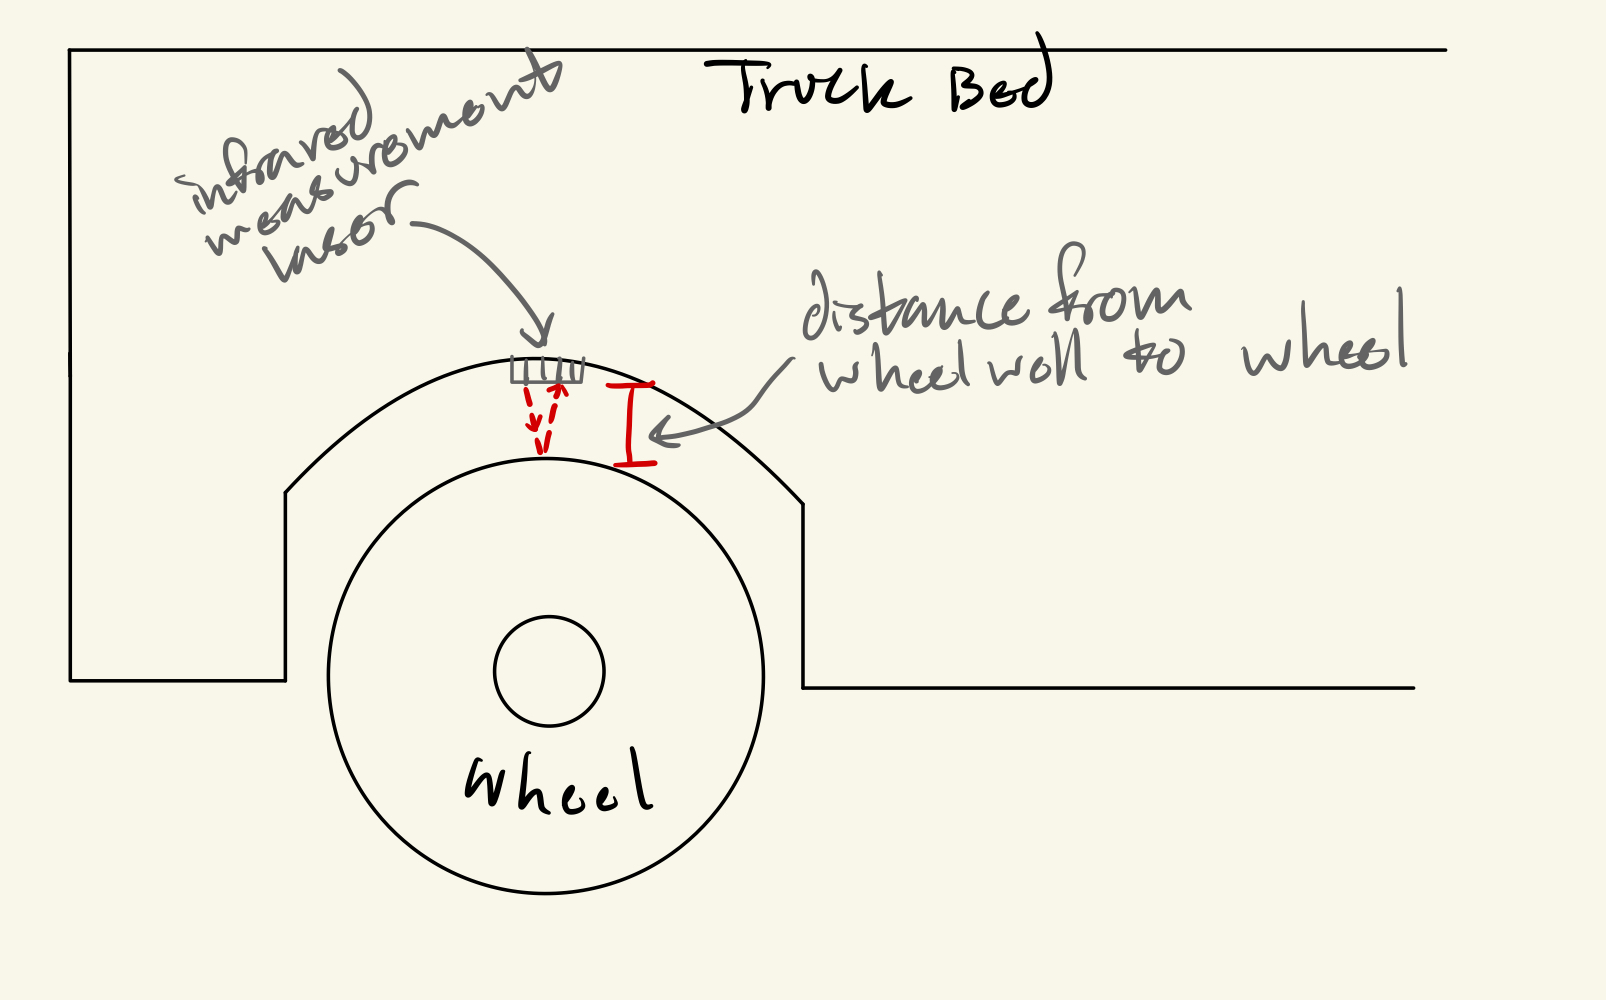 Truck Bed
infrared
measurement
laser
distance from
wheel well to wheel
wheel